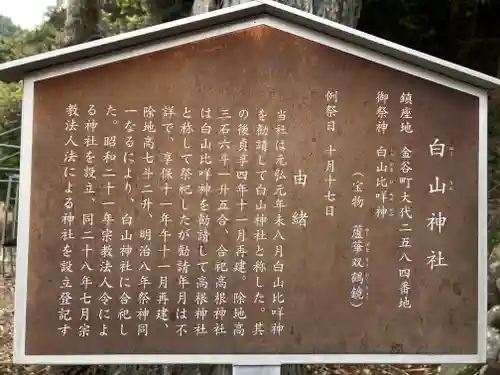 白山神社
鎮座地 金谷町大代二五八四番地
御祭神 白山比咩神
(宝物 蘆葦双鶴鏡)
例祭日 十月十七日
由緒
当社は元弘元年未八月白山比咩神
を勧請して白山神社と称した。其
の後貞享四年十一月再建。除地高
三石六斗一升五合、合祀高根神社
は白山比咩神を勧請して高根神社
と称して祭祀したが勧請年月は不
詳で、享保十一年午十一月再建、
除地高七斗二升、明治八年祭神同
一なるにより、白山神社に合祀し
た。昭和二十一年宗教法人令によ
る神社を設立、同二十八年七月宗
教法人法による神社を設立登記す